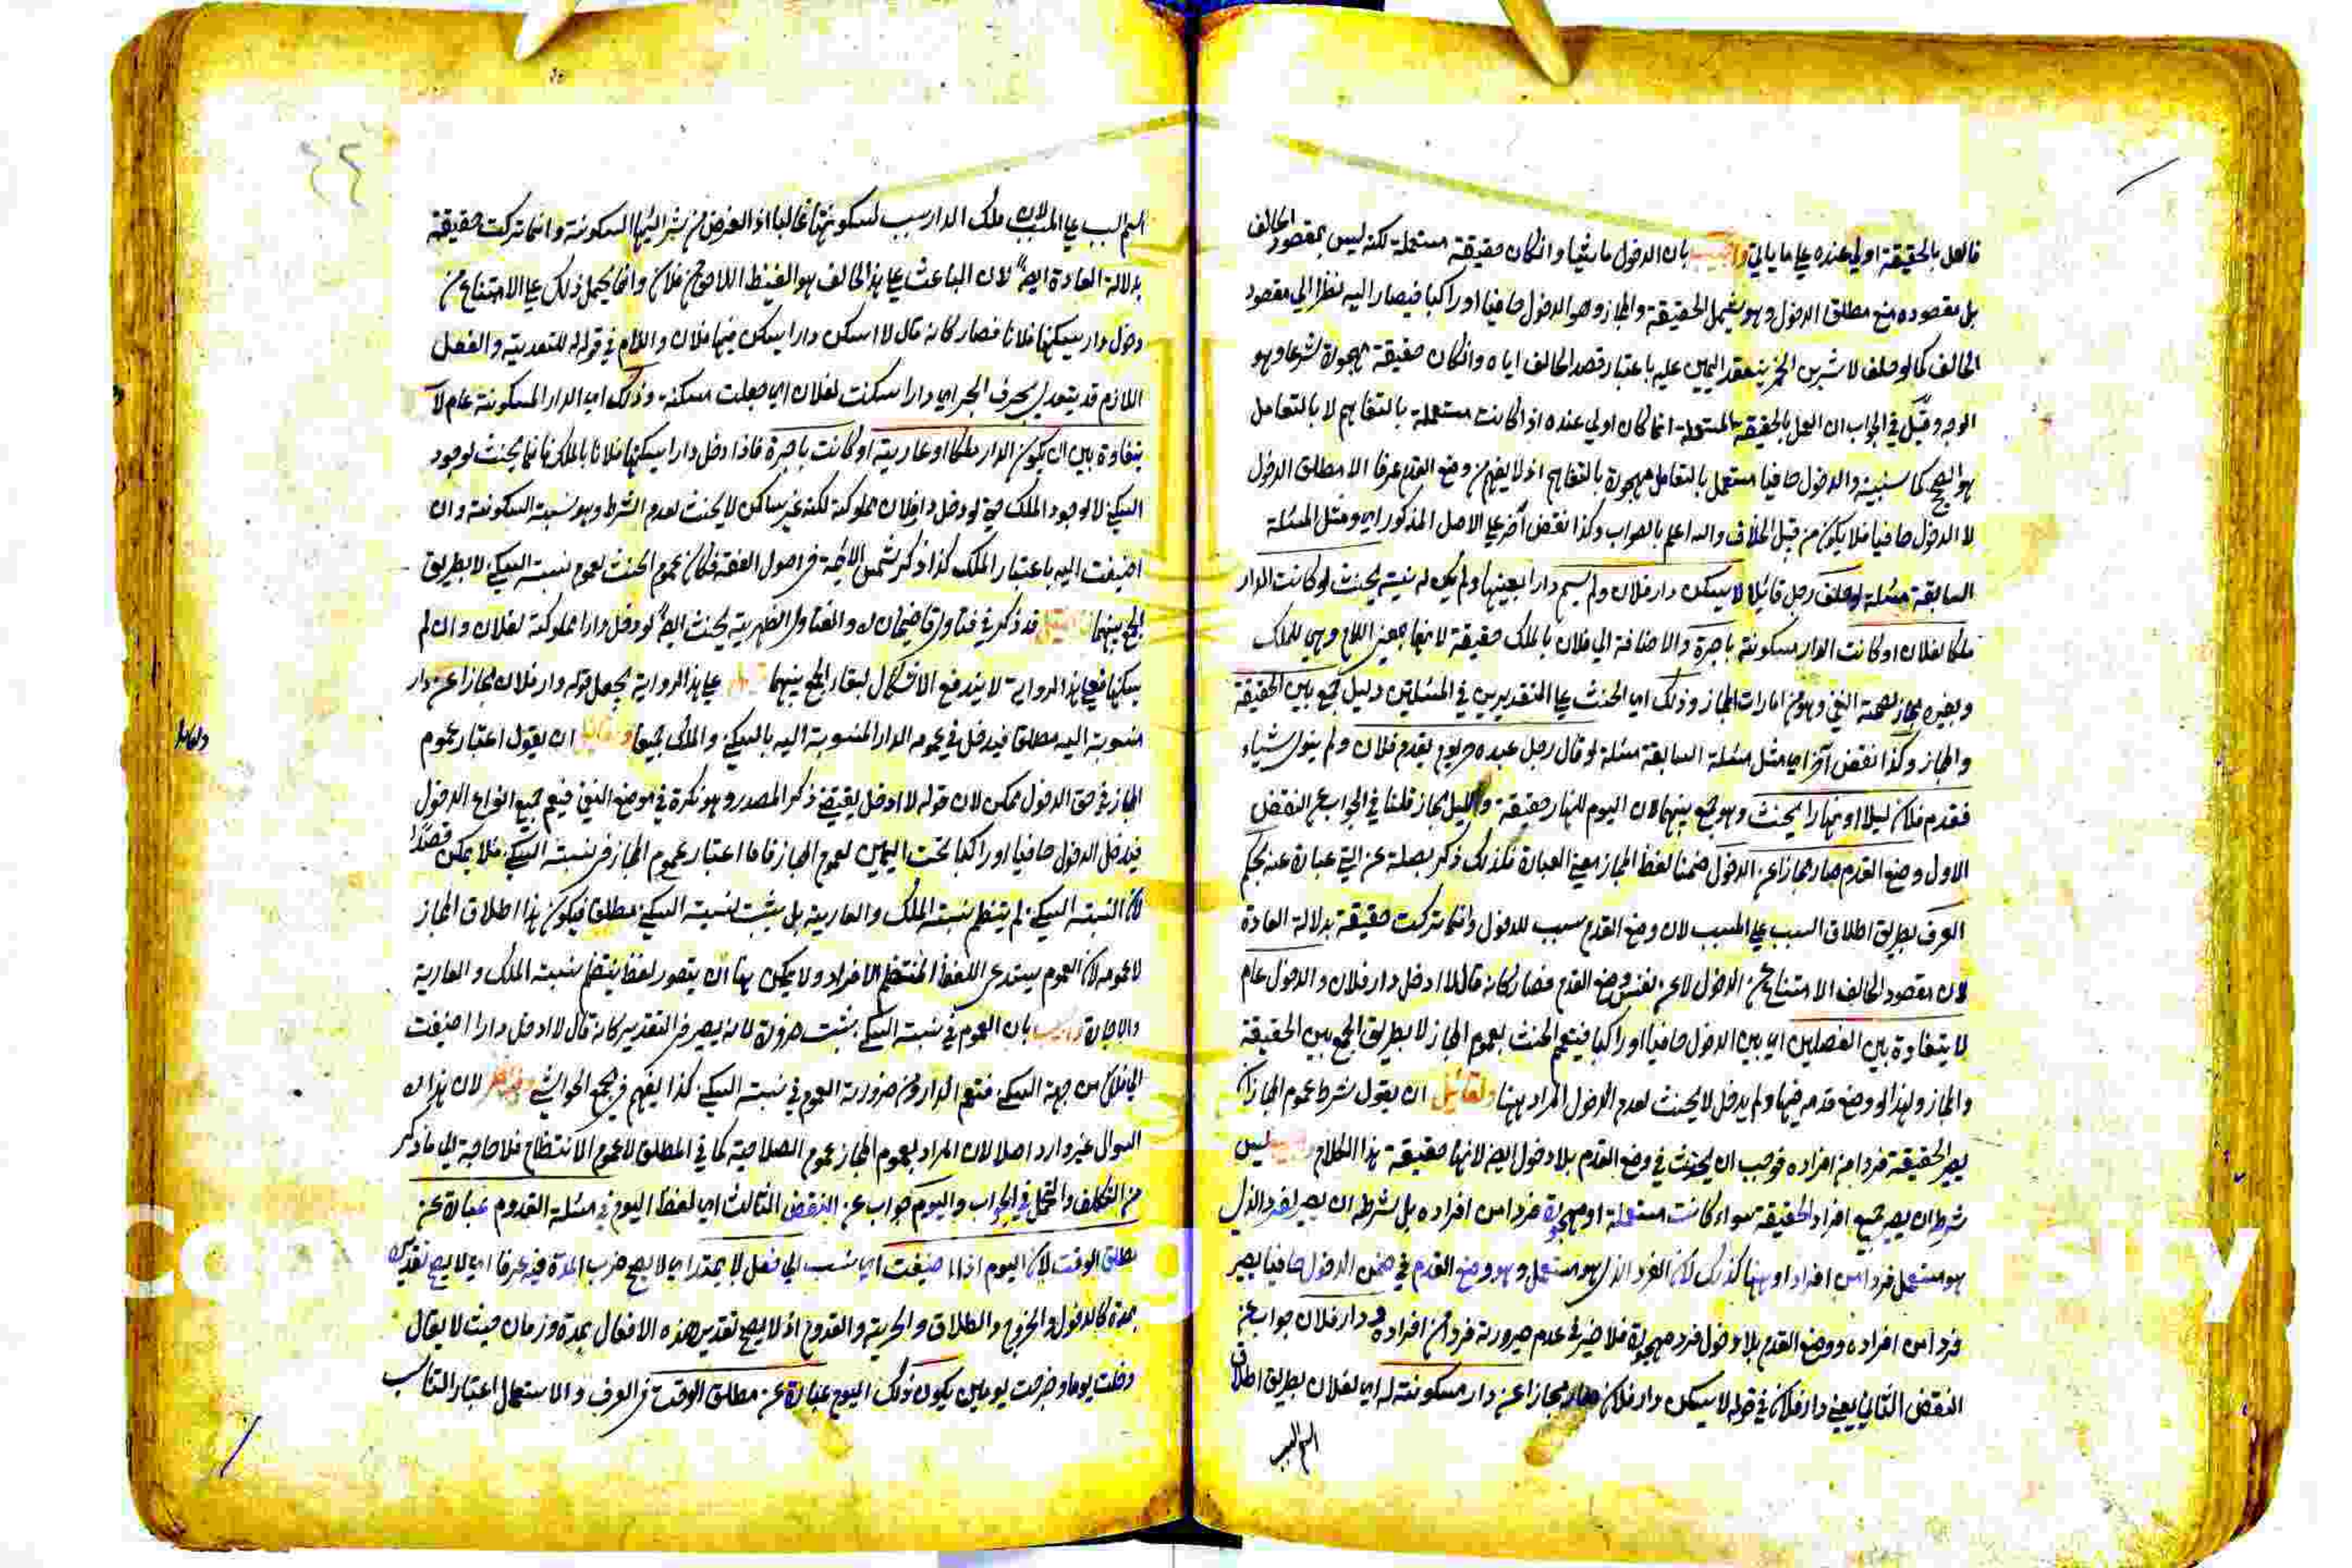 فالعمل بالحقيقة اولي عنده علي ما ياتي واجيب بان الدخول ماشيا وان كان حقيقة مستعملة لكنه ليس بمقصود الحالف
بل مقصوده منع مطلق الدخول وهو يشمل الحقيقة والمجاز وهو الدخول حافيا او راكبا فيصار اليه نظرا الي مقصود
الحالف كما لو حلف لا شربن الخمر ينعقد اليمين عليه باعتبار قصد الحالف اياه وان كان حقيقة مهجورة شرعا وهو
الوجه وقيل في الجواب ان العمل بالحقيقة المستعملة انما كان اولي عنده اذا كانت مستعملة بالتفاهم لا بالتعامل
هو الصحيح كما سنبينه والدخول حافيا مستعمل بالتعامل مهجورة بالتفاهم اذ لا يفهم من وضع القدم عرفا الا مطلق الدخول
لا الدخول حافيا فلا يكون من قبيل الخلاف والله اعلم بالصواب وكذا نقض آخر علي الاصل المذكور اي ومثل المسئلة
السابقة مسئلة لو حلف رجل قائلا لا يسكن دار فلان ولم يسم دارا بعينها ولم يكن له نية يحنث لو كانت الدار
ملكا لفلان او كانت الدار مسكونة باجرة والاضافة الي فلان بالملك حقيقة لانها بمعني اللام وهي للملك
وبغيره مجاز لصحة النفي وهو من امارات المجاز وذلك اي الحنث علي التقديرين في المسئلتين دليل جمع بين الحقيقة
والمجاز وكذا نقض آخر اي مثل مسئلة السابقة مسئلة لو قال رجل عبده حر يوم يقدم فلان ولم ينو شياء
فقدم فلان ليلا او نهارا يحنث وهو جمع بينهما لان اليوم للنهار حقيقة والليل مجاز قلنا في الجواب عن النقض
الاول وضع القدم صار مجازا عن الدخول ضمنا لفظ المجاز معني العبارة فلذلك ذكر بصلة عن التي عبارة عنه بحكم
العرف بطريق اطلاق السبب علي المسبب لان وضع القدم سبب للدخول وانما تركت حقيقة بدلالة العادة
لان مقصود الحالف الامتناع عن الدخول لا عن نفس وضع القدم فصار كانه قال لا ادخل دار فلان والدخول عام
لا يتفاوة بين الفصلين اي بين الدخول حافيا او راكبا فيعم الحنث بعموم المجاز لا بطريق الجمع بين الحقيقة
والمجاز ولهذا لو وضع قدمه فيها ولم يدخل لا يحنث لعدم الدخول المراد بهنا ولقائل ان يقول شرط عموم المجاز ان
يصير الحقيقة فردا من افراده فوجب ان يحنث في وضع القدم بلا دخول ايضا لانها حقيقة هذا الكلام ليس
شرط ان يصير جميع افراد الحقيقة سواء كانت مستعملة او مهجورة فردا من افراده بل شرطه ان يصير لفرد الذي
هو مستعمل فردا من افراده وبهنا كذلك لان الفرد الذي هو مستعمل وهو وضع القدم في ضمن الدخول حافيا يصير
فردا من افراده ووضع القدم بلا دخول فرد مهجورة فلا ضير في عدم صيرورته فردا من افراده ودار فلان جواب عن
النقض الثاني يعني دار فلان في قوله لا يسكن دار فلان صار مجازا عن دار مسكونة له اي لفلان بطريق اطلاق
اسم السبب
اسم السبب علي المسبب لان ملك الدار سبب لسكونتها غالبا اذ الغرض من شراءها السكونة وانما تركت حقيقة
بدلالة العادة ايضا لان الباعث علي هذا الحالف هو الغيظ اللاحق من فلان وانما يحمل ذلك علي الامتناع من
دخول دار يسكنها فلانا فصار كانه قال لا اسكن دارا يسكن فيها فلان واللام في قوله له للتعدية والفعل
اللازم قد يتعدي بحرف الجر اي دارا سكنت لفلان اي جعلت مسكنه وذلك اي الدار المسكونة عام لا
يتفاوة بين ان يكون الدار ملكا او عارية او كانت باجرة فاذا دخل دارا يسكنها فلانا بالملك فانما يحنث لوجود
السكني لا لوجود الملك حتي لو دخل دار فلان مملوكة لكنه غير ساكن لا يحنث لعدم الشرط وهو نسبة السكونة وان
اضيفت اليه باعتبار الملك كذا ذكر شمس الائمة في اصول الفقه فكان عموم الحنث لعموم نسبة السكني لا بطريق
الجمع بينهما فان قيل قد ذكر في فتاوي قاضيخان له والفتاوي الظهيرية يحنث ايضا لو دخل دارا مملوكة لفلان وان لم
يسكنها فعلي هذا الرواية لا يندفع الاشكال لبقاء الجمع بينهما علي هذا الرواية يجعل قوله دار فلان مجازا عن دار
منسوبة اليه مطلقا فيدخل في عمومه الدار المنسوبة اليه بالسكني والملك جميعا ولقائل ان يقول اعتبار عموم
المجاز في حق الدخول ممكن لان قوله لا ادخل يقتضي ذكر المصدر وهو نكرة في موضع النفي فيعم جميع انواع الدخول
فيدخل الدخول حافيا او راكبا تحت اليمين لعموم المجاز فاما اعتبار عموم المجاز في نسبة السكني فلا يمكن قصدا
لان النسبة السكني لم ينتظم نسبة الملك والعارية بل يثبت لنسبة السكني مطلقا فيكون هذا اطلاق المجاز
لا عمومه لان العموم يستدعي اللفظ المنتظم الافراد ولا يمكن بهنا ان يتصور لفظ ينتظم نسبة الملك والعارية
والاجارة واجيب بان العموم في نسبة السكني يثبت ضرورة لانه يصير في التقدير كانه قال لا ادخل دارا اضيفت
الي فلان من جهة السكني فتعم الدار ومن ضرورته العموم في نسبة السكني كذا يفهم في جميع الحواشي وفيه نظر لان هذا
السوال غير وارد اصلا لان المراد بعموم المجاز عموم الصلاحية كما في المطلق لا عموم الانتظام فلا حاجة الي ما ذكر
من التكلف والتمحل في الجواب واليوم جواب عن النقض الثالث اي لفظ اليوم في مسئلة القدوم عبارة عن
مطلق الوقت لان اليوم اذا اضيفت اي نسب الي فعل لا يمتد اي لا يصح ضرب المدة فيه عرفا اي لا يصح تقديره
بمدة كالدخول والخروج والطلاق والحرية والقدوم اذ لا يصح تقدير هذه الافعال بمدة وزمان حيث لا يقال
دخلت يوما وخرجت يومين يكون ذلك اليوم عبارة عن مطلق الوقت في العرف والاستعمال اعتبار التناسب